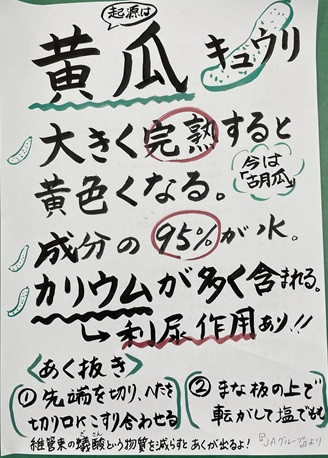 起源は
黄瓜 キュウリ
大きく完熟すると
黄色くなる。
今は
「胡瓜」
成分の95%が水。
カリウムが多く含まれる。
→利尿作用あり!!
<あく抜き>
①先端を切り、ヘタを
切り口にこすり合わせる
②まな板の上で
転がして塩でもむ
維管束の蟻酸という物質を減らすとあくが出るよ!
ぎさん
『JAグループ』より